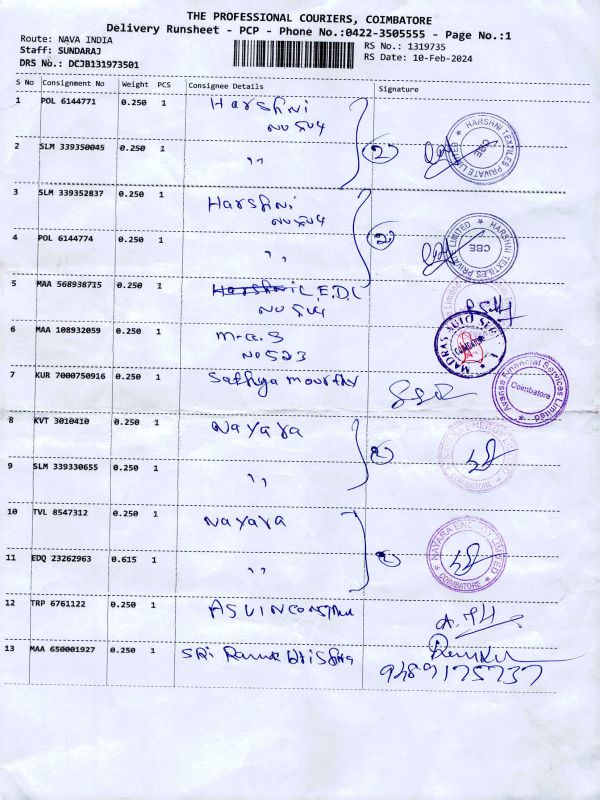 THE PROFESSIONAL COURIERS, COIMBATORE
Delivery Runsheet - PCP - Phone No.:0422-3505555 - Page No.:1
Route: NAVA INDIA
RS No.: 1319735
Staff: SUNDARAJ
RS Date: 10-Feb-2024
DRS No.: DCJB131973501
S No Consignment No Weight PCS Consignee Details Signature
1 POL 6144771 0.250 1 Harshni
HARSHNI TEXTILES PRIVATE LIMITED CBE
2 SLM 339350045 0.250 1 ,, 2
3 SLM 339352837 0.250 1 Harshni
HARSHNI TEXTILES PRIVATE LIMITED CBE
4 POL 6144774 0.250 1 ,, 2
5 MAA 568938715 0.250 1
6 MAA 108932059 0.250 1 m.a.s
NO 523
MADRAS AUTO SERVICE
7 KUR 7000750916 0.250 1 Sathya moorthy
Financial Services Limited Coimbatore
8 KVT 3010410 0.250 1 Nayara
9 SLM 339330655 0.250 1 ,, 2
COIMBATORE
10 TVL 8547312 0.250 1 Nayara
NAYARA ENERGY LIMITED COIMBATORE
11 EDQ 23262963 0.615 1 ,,
12 TRP 6761122 0.250 1
13 MAA 650001927 0.250 1 SRi
9489175737